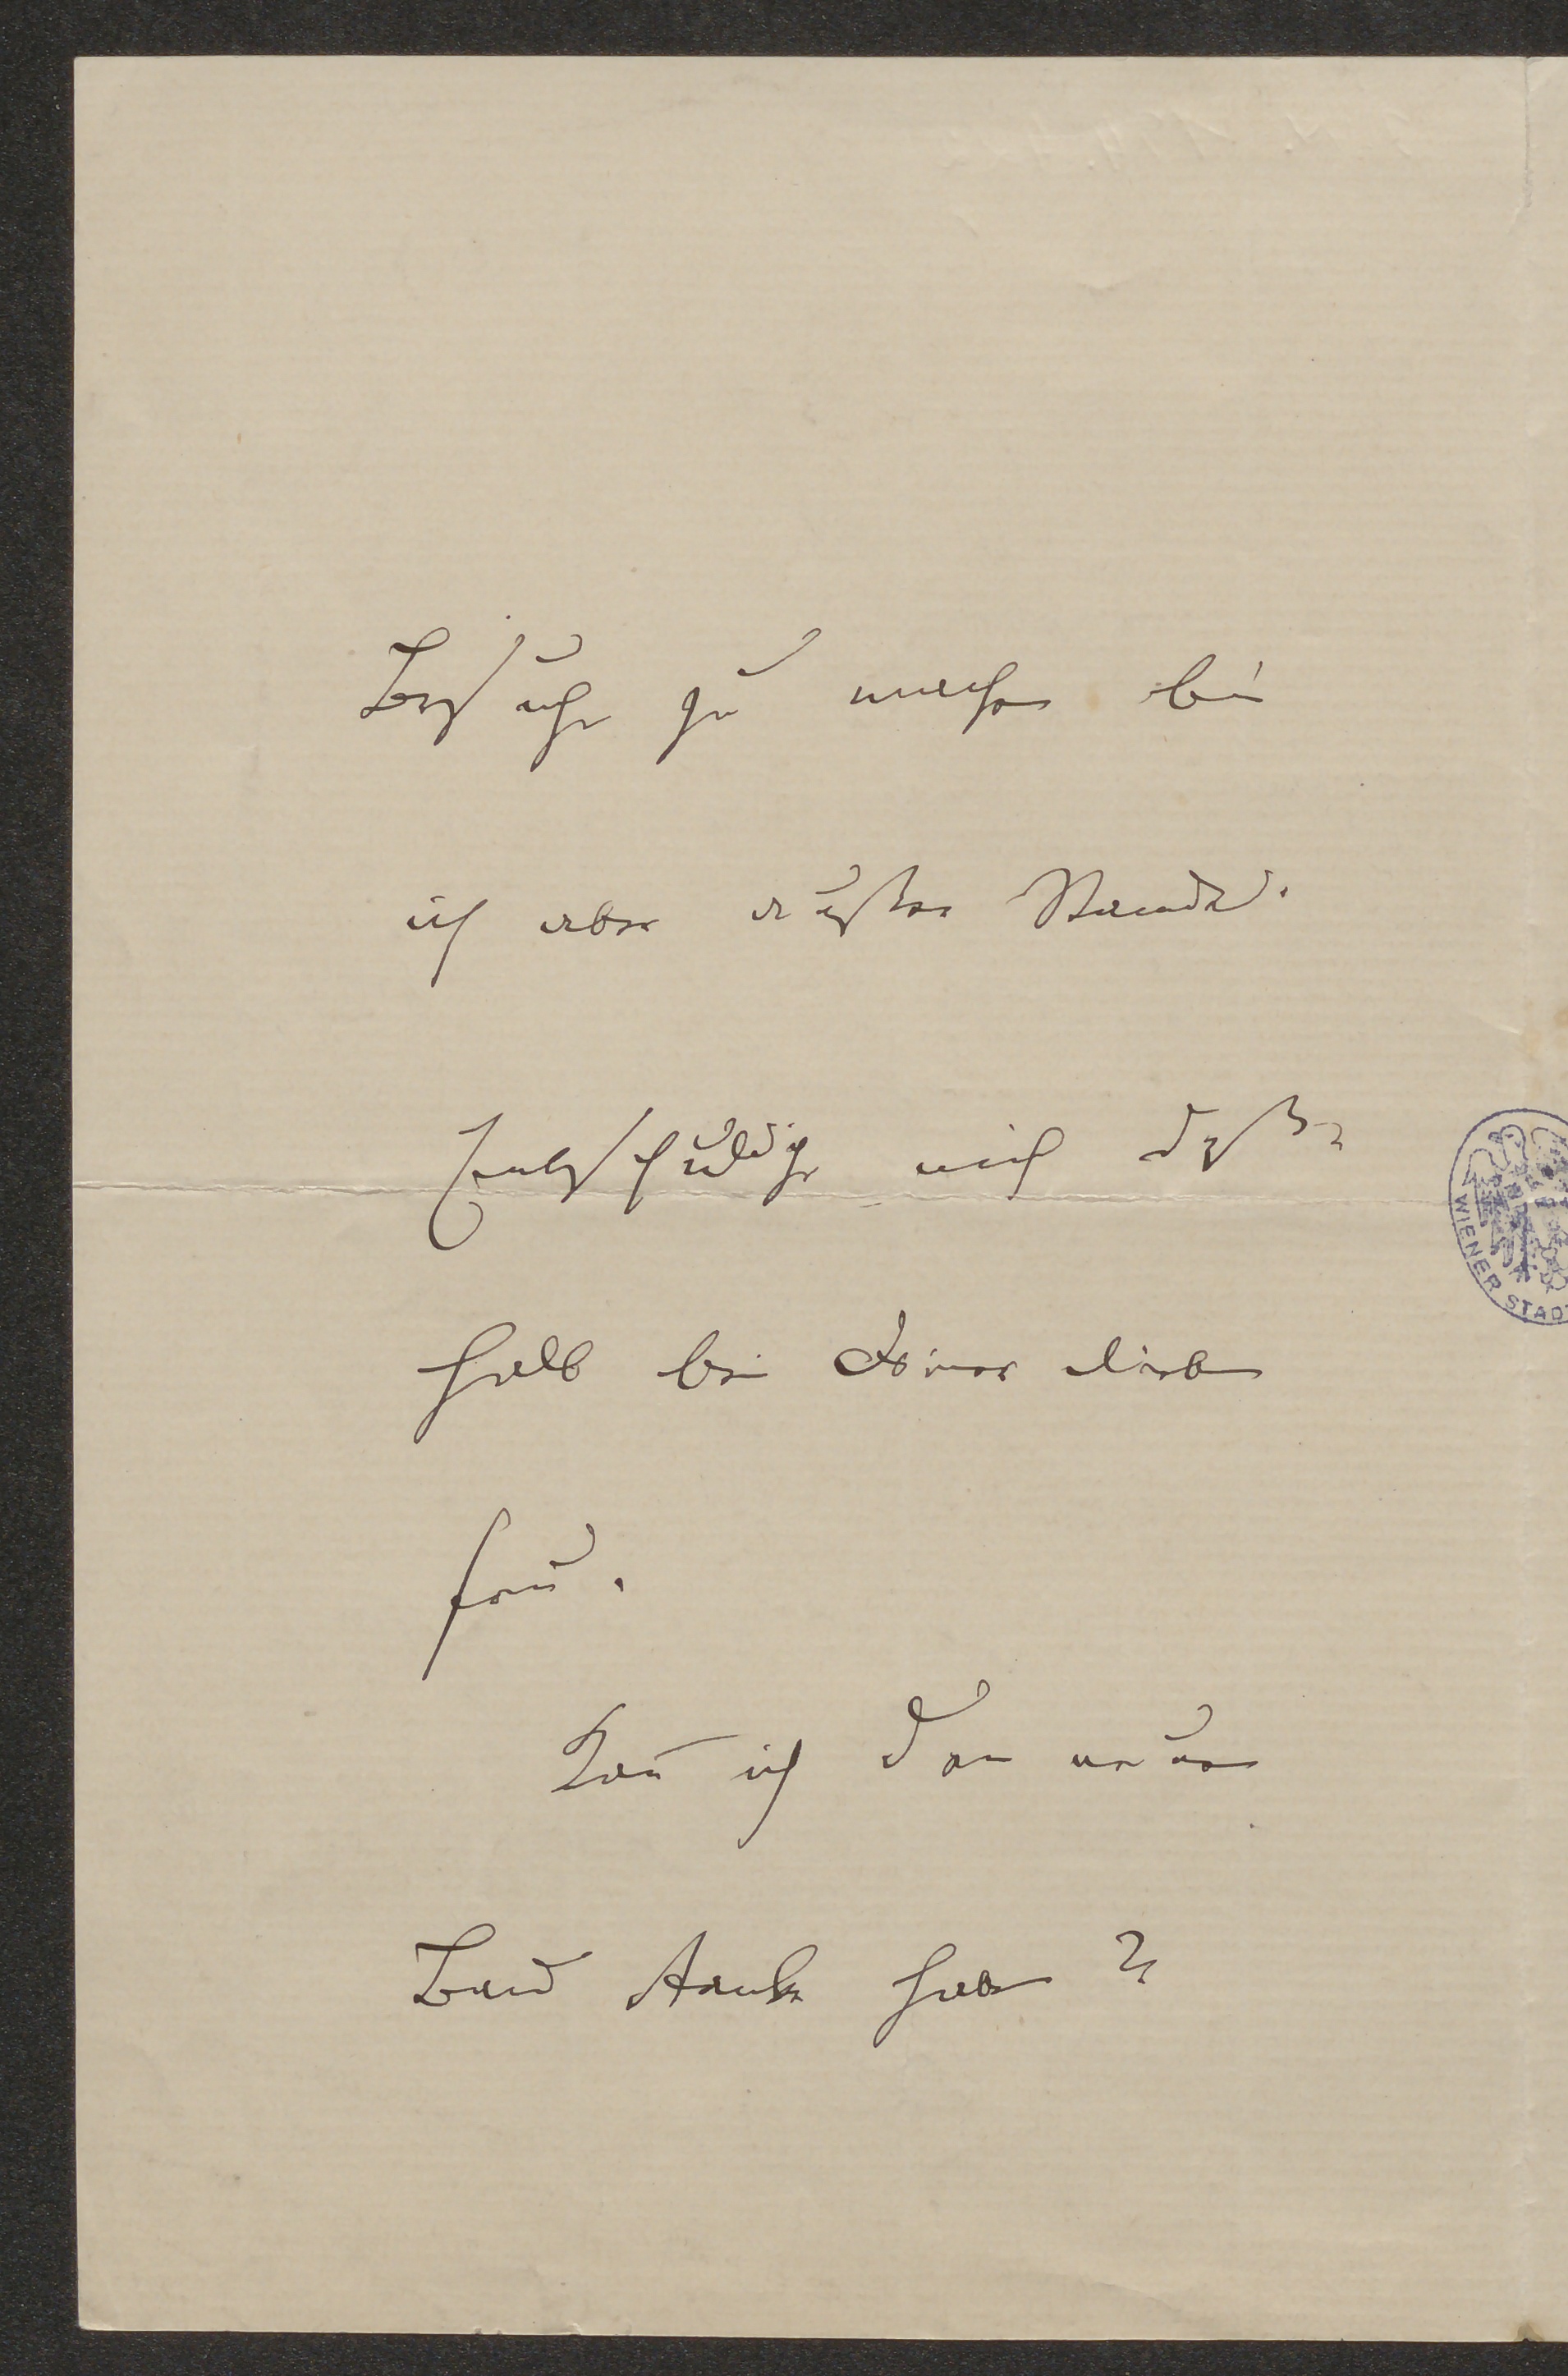 Besuche zu machen bin
ich aber außer Stande.
Entschuldige mich deß-
halb bei Deiner lieben
Frau.
Kan̅ ich den neuen
Band Anti haben?
WIENER STADT